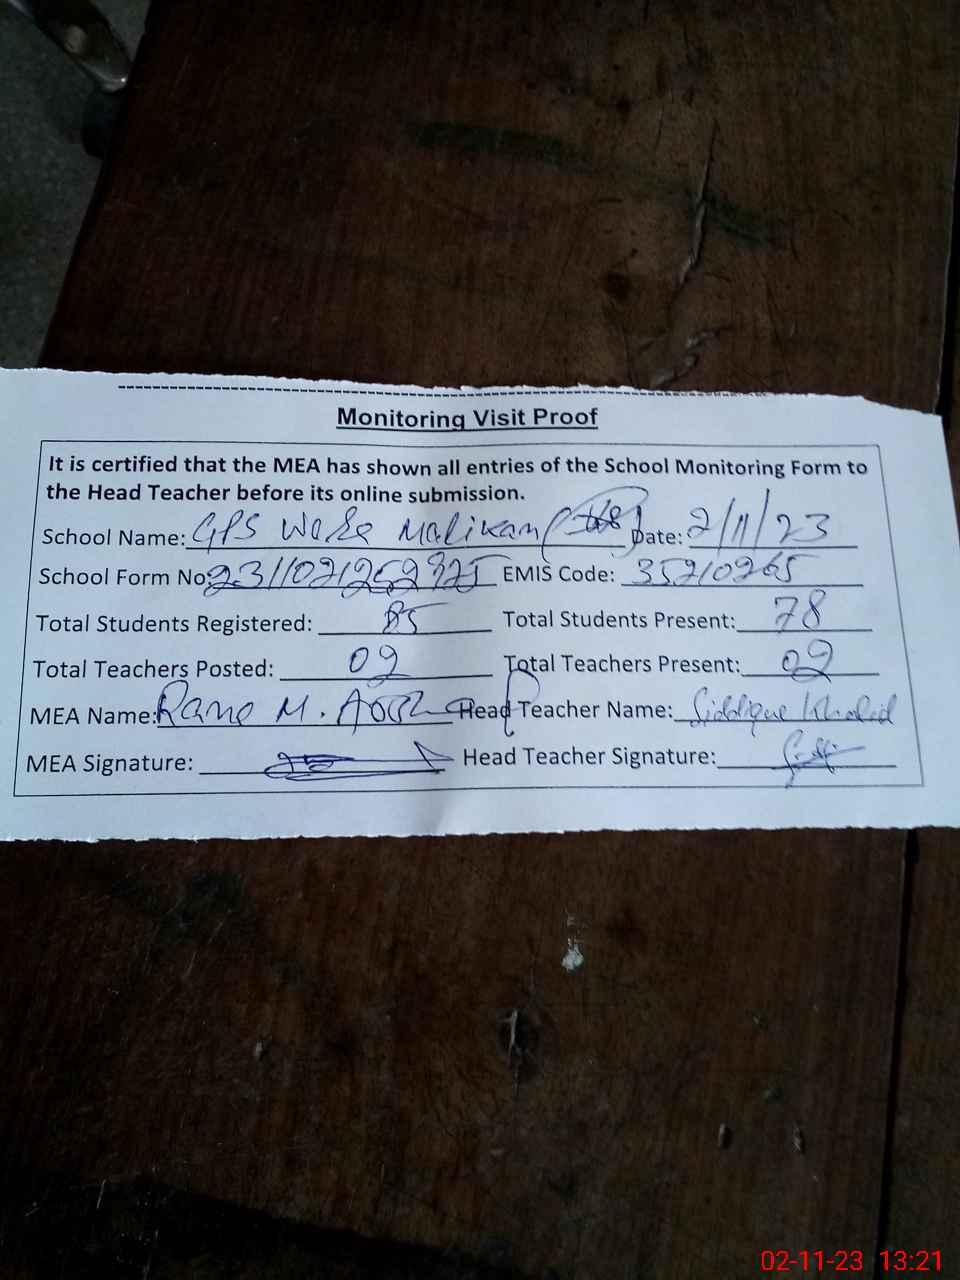 Monitoring Visit Proof
It is certified that the MEA has shown all entries of the School Monitoring Form to
the Head Teacher before its online submission.
School Name: GPS Malikam Date: 2/11/23
School Form No: EMIS Code: 35210265
Total Students Registered: 85 Total Students Present: 78
Total Teachers Posted: 02 Total Teachers Present: 02
MEA Name: Rana M. Head Teacher Name: Siddique Khalid
MEA Signature: Head Teacher Signature:
02-11-23 13:21